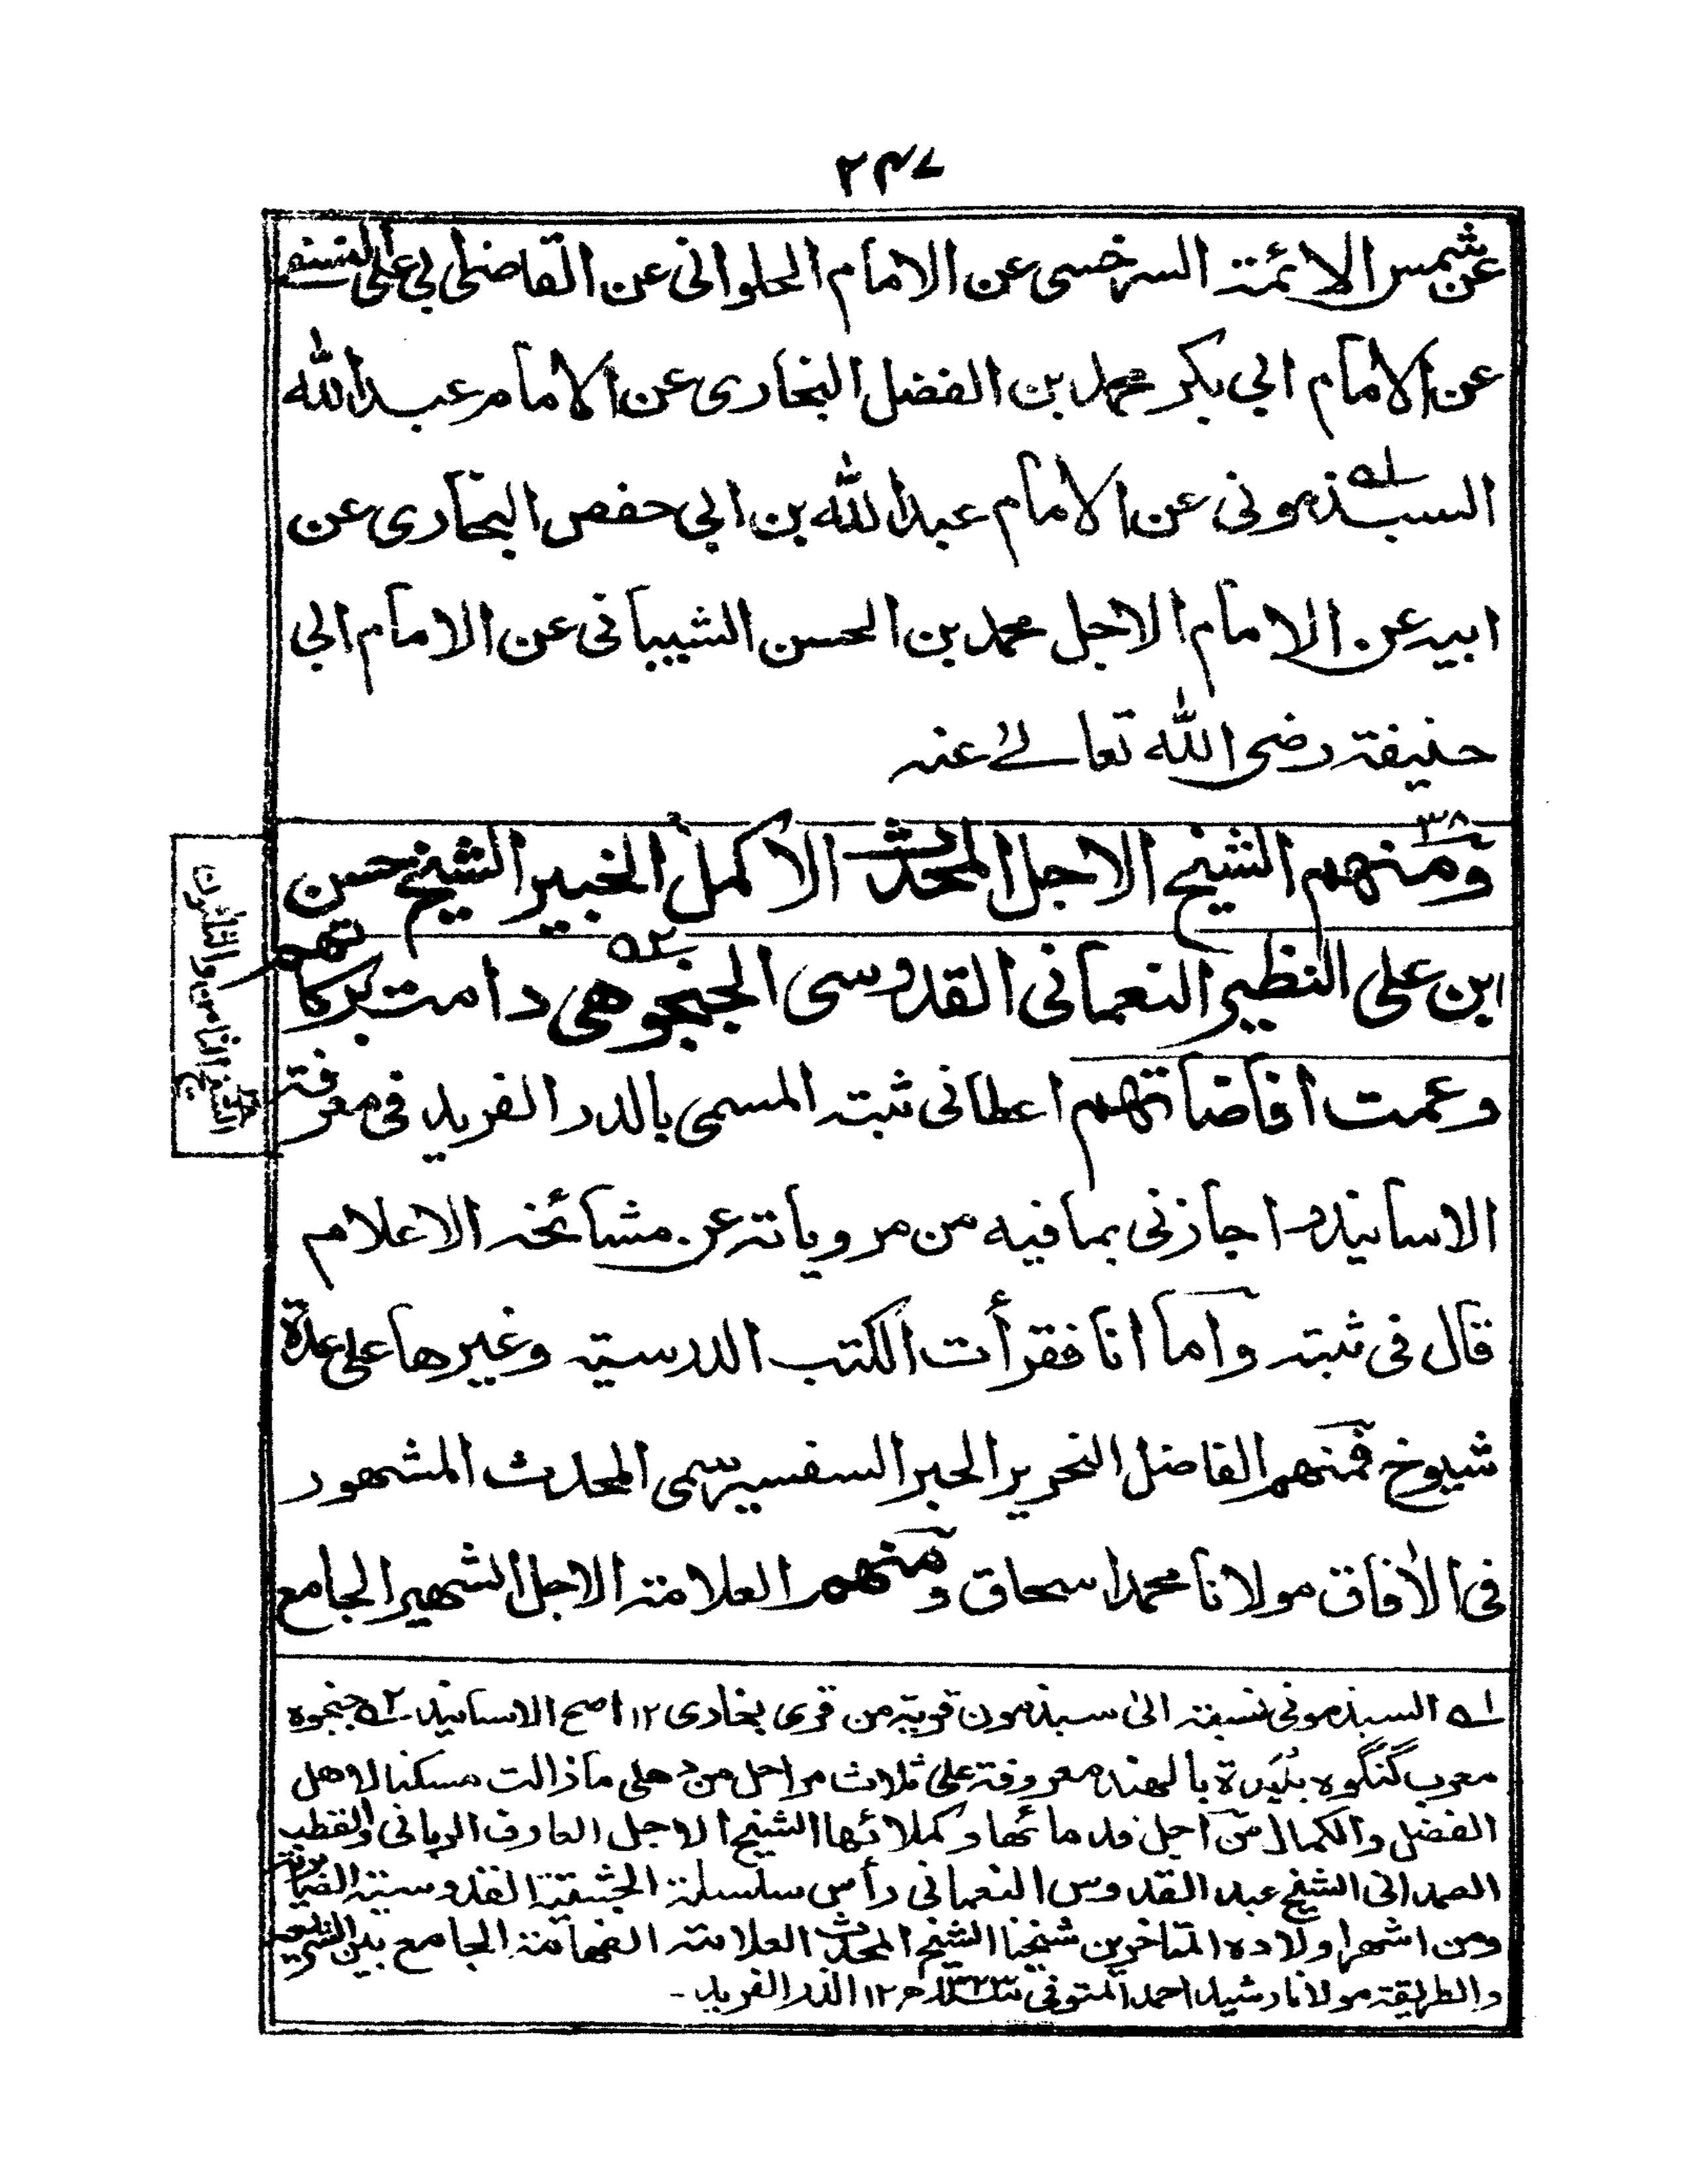 ٢٤٧
عن شمس الائمة السرخسى عن الامام الحلوانى عن القاضى ابى على النسفى
عن الامام ابي بكر محمد بن الفضل البخارى عن الامام عبد الله
السبذمونى عن الامام عبد الله بن ابي حفص البخارى عن
ابيه عن الامام الاجل محمد بن الحسن الشيبانى عن الامام ابي
حنيفة رضى الله تعالى عنه
٣٨
ومنهم الشيخ الاجل المحدث الاكمل الخبير الشيخ حسن
ابن على النظير النعمانى القدوسى الجنجوهى دامت بركاتهم
وعمت افاضاتهم اعطانى ثبته المسمى بالدر الفريد فى معرفة
الاسانيد واجازنى بما فيه من مروياته عن مشائخه الاعلام
قال فى ثبته وأما انا فقرأت الكتب الدرسية وغيرها على عدة
شيوخ فمنهم الفاضل النحرير الحبر السفسير سمى المحدث المشهور
فى الأفاق مولانا محمد اسحاق ومنهم العلامة الاجل الشهير الجامع
الشيخ الثامن والثلثون
١ه السبذمونى نسبة الى سبذمون قرية من قرى بخارى ١٢ اصح الاسانيد ٢ه جنجوه
معرب گنگوه بليدة بالهند معروفة على ثلاث مراحل من دهلى ما زالت مسكنا لاهل
الفضل والكمال من اجل قدمائها وكملائها الشيخ الاجل العارف الربانى والقطب
الصمدانى الشيخ عبد القدوس النعمانى رأس سلسلة الجشتية القدوسية الصابرية
ومن اشهر اولاده المتاخرين شيخنا الشيخ المحدث العلامة الفهامة الجامع بين الشريعة
والطريقة مولانا رشيد احمد المتوفى سنة ١٣٢٣ه ١٢ الدر الفريد -